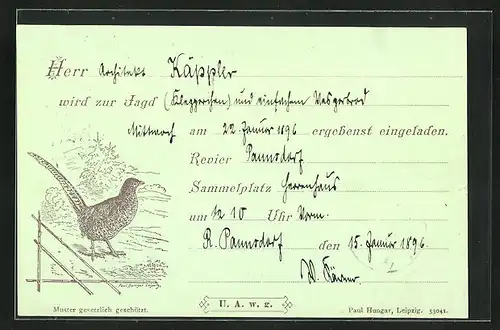 Herr Architekt Käppler
wird zur Jagd und einfachem
Mittwoch am 22 Januar 1896 ergebenst eingeladen.
Revier Paunsdorf
Sammelplatz Herrenhaus
um 10 Uhr Vorm.
R. Paunsdorf den 15. Januar 1896
W.
U. A. w. g.
Muster gesetzlich geschützt.
Paul Hungar, Leipzig. 53041.